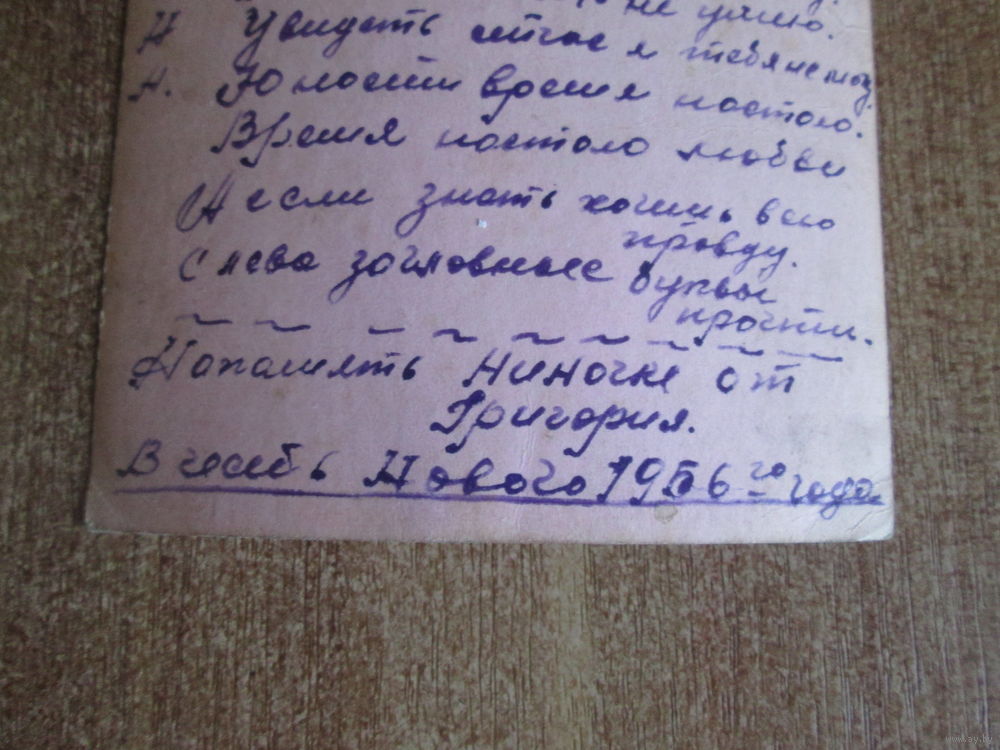 не умею.
И Увидеть сейчас я тебя не могу.
А. Юности время настало.
Время настало любви
А если знать хочишь всю
правду.
Слева заглавные буквы
прочти.
На память Ниночке от
Григория.
В честь Нового 1956 го года.
www.ay.by